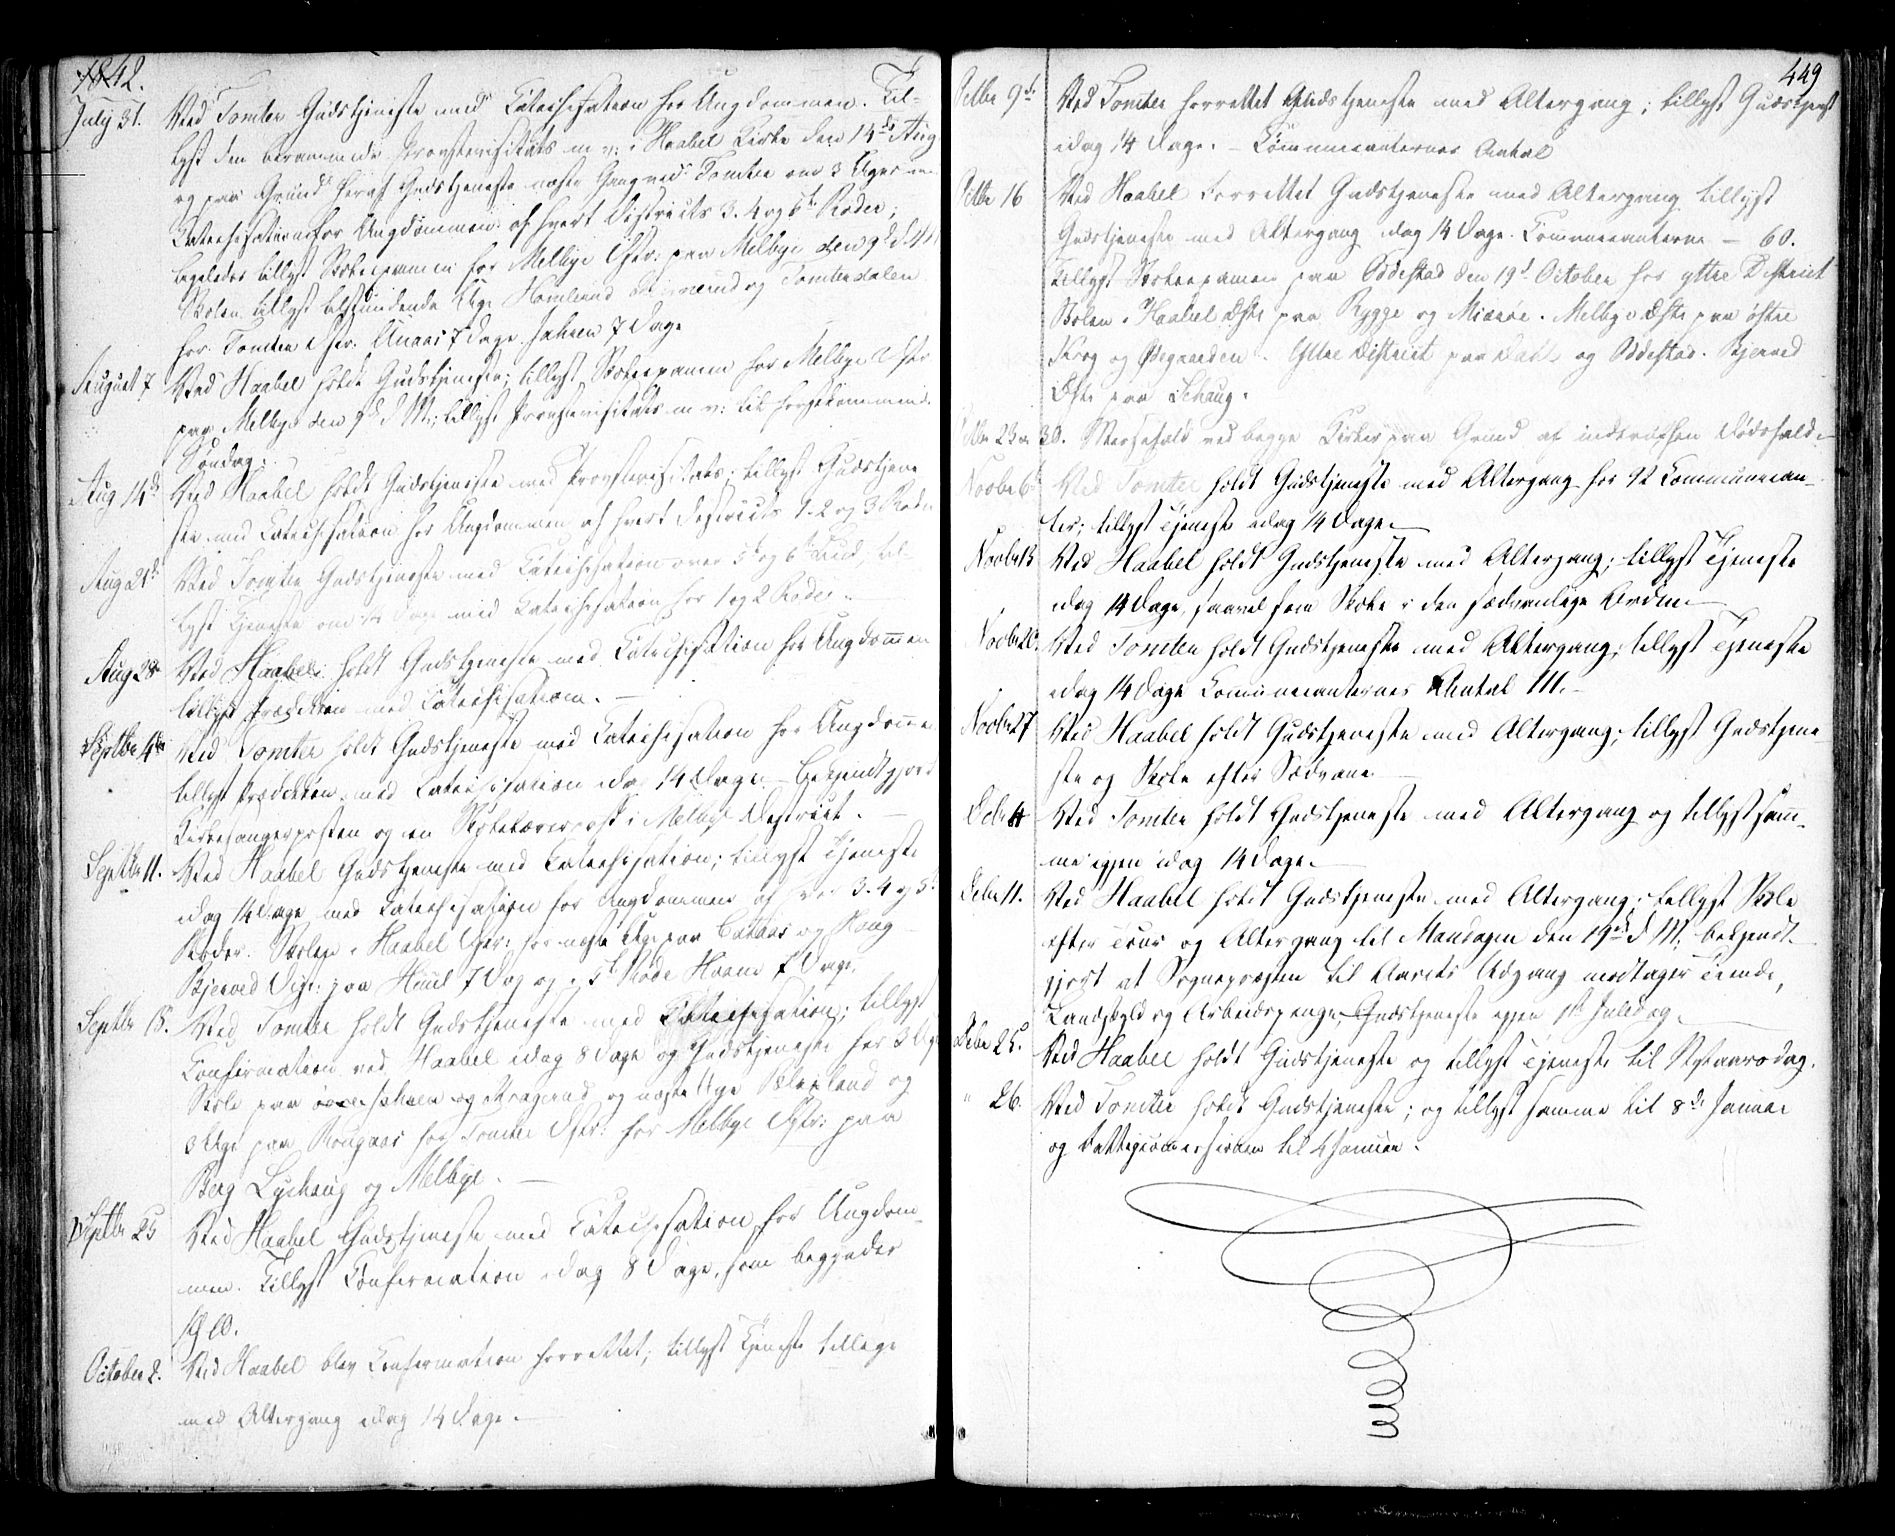 1842.
July 31. Ved Tomter Gudstjeneste med Catechisation for Ungdommen. Til-
lyst den berammede Provstevisitats m. v. i Haabel Kirke den 14de Aug
og paa Grund heraf Gudstjeneste næste Gang ved Tomter om 3 Uger m.
Catechisation for Ungdommen af hvert Districts 3. 4 og 5te Roder;
ligeledes tillyst Skoleexamen for Melbye Distr: paa Melbye den 9de d. M.
Skolen tillyst tilstundende Uge og Tomterdalen
for Tomter Distr. 7 Dage 7 Dage
August 7 Ved Haabel holdt Gudstjeneste; tillyst Skoleexamen for Melbye Distr
paa Melbye den 9de d. M.; tillyst Provstevisitats m. v: til førstkommende
Søndag.
Aug 14de Ved Haabel holdt Gudstjeneste med Provstevisitats; tillyst Gudstjene
ste med Catechisation for Ungdommen af hvert Districts 1. 2 og 3 Rode
Aug 21de Ved Tomter Gudstjeneste med Catechisation over 5te og 6te Bud, til-
lyst Tjeneste om 14 Dage med Catechisation for 1 og 2 Roder.
Aug 28 Ved Haabel holdt Gudstjeneste med Catechisation for Ungdommen
tillyst Prædiken med Catechisation. —
Septbr 4de Ved Tomter holdt Gudstjeneste med Catechisation for Ungdomme
tillyst Prædiken med Catechisation idag 14 Dage — bekjendtgjort
Kirkesangerposten og en Skolelærerpost i Melbye District. —
Septbr 11. Ved Haabel Gudstjeneste med Catechisation; tillyst Tjeneste
idag 14 Dage med Catechisation for Ungdommen af 3. 4 og 5te
Roder. Skolen i Haabel Distr: for næste Uge paa og Houg
Bjerved Distr: paa Huul 7 Dag og i 5te Rode 7 Dage.
Septbr 18. Ved Tomter holdt Gudstjeneste med Catechisation; tillyst
Confirmation ved Haabel idag 8 Dage og Gudstjeneste her 3 Uger
Skole paa og Kragerud og næste Uge og
3 Uge paa for Tomter Distr: for Melbye Distr: paa
Berg Lyshaug og Melbye. —
Septbr 25 Ved Haabel Gudstjeneste med Catechisation for Ungdom-
men. Tillyst Confirmation idag 8 Dage, som begynder
Kl 10.
October 2. Ved Haabel blev Confirmation forrettet; tillyst Tjeneste tillige
med Altergang idag 14 Dage. —
449
Octbr 9de Ved Tomter forrettet Gudstjeneste med Altergang; tillyst Gudstjenest
idag 14 Dage. — Communicanternes Antal
Octbr 16 Ved Haabel forrettet Gudstjeneste med Altergang tillyst
Gudstjeneste med Altergang idag 14 Dage. Communicanterne — 60.
tillyst Skoleexamen paa Oddestad den 19de October for ytre District
Skolen i Haabel Distr paa Rygge og . Melbye Distr paa østre
Krog og Ødegaarden. Yttre District paa Dahl og Oddestad. Bjerved
Distr paa Schaug.
Octbr 23 og 30. Messefald ved begge Kirker paa Grund af indtruffen Dødsfald.
Novbr 6 Ved Tomter holdt Gudstjeneste med Altergang for 92 Communican-
ter; tillyst Tjeneste idag 14 Dage. —
Novbr 13 Ved Haabel holdt Gudstjeneste med Altergang; tillyst Tjeneste
idag 14 Dage, saavel som Skole i den sædvanlige Orden —
Novbr 20. Ved Tomter holdt Gudstjeneste med Altergang; tillyst Tjeneste
idag 14 Dage Communicanternes Antal 111. —
Novbr 27 Ved Haabel holdt Gudstjeneste med Altergang; tillyst Gudstjene
ste og Skole efter Sædvane. —
Decbr 4 Ved Tomter holdt Gudstjeneste med Altergang og tillyst sam-
me igjen idag 14 Dage. —
Decbr 11. Ved Haabel holdt Gudstjeneste med Altergang; tillyst Skole
efter Tour og Altergang til Mandagen den 19de d M. bekjendt-
gjort at Sognepræsten til Aarets Udgang modtager Tiende,
Landskyld og Arbeidspenge, Gudstjeneste igjen 1ste Juledag.
Decbr 25. Ved Haabel holdt Gudstjeneste og tillyst Tjeneste til Nytaarsdag.
" 26. Ved Tomter holdt Gudstjeneste; og tillyst samme til 8de Januar
og Fattigcommissionen til 4 Januar.